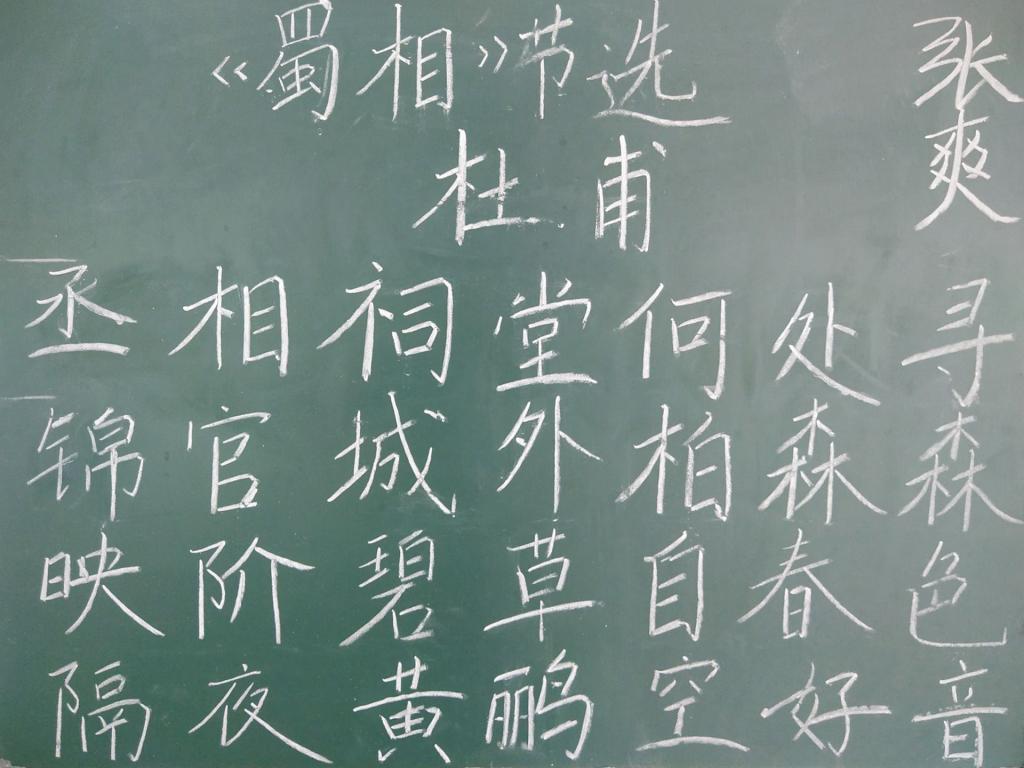 《蜀相》节选
张爽
杜甫
丞相祠堂何处寻
锦官城外柏森森
映阶碧草自春色
隔夜黄鹂空好音